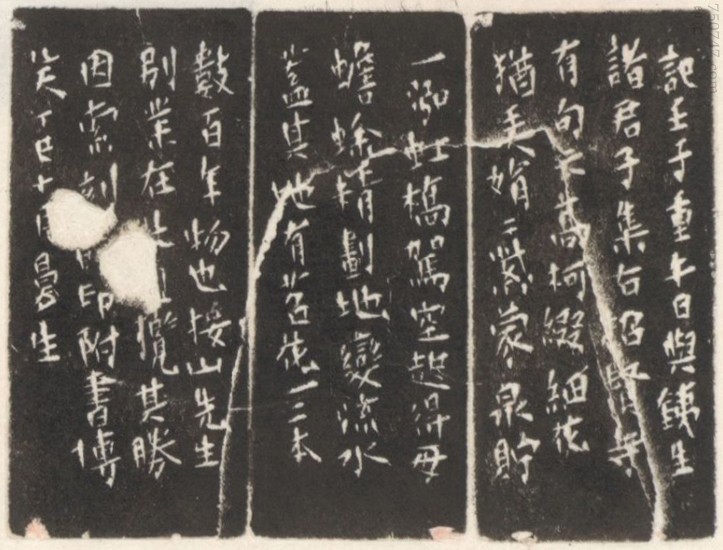 記壬子重午日與銕生
諸君子集古招賢寺
有句云萬柯綴細花
猶美娟〻紫蒙泉貯
一泓虹橋駕空起得毋
蟾蜍精劃地變流水
蓋其地有名花一二本
數百年物也接山先生
別業在攬其勝
因索刻印附書博
笑丁巳十月曼生